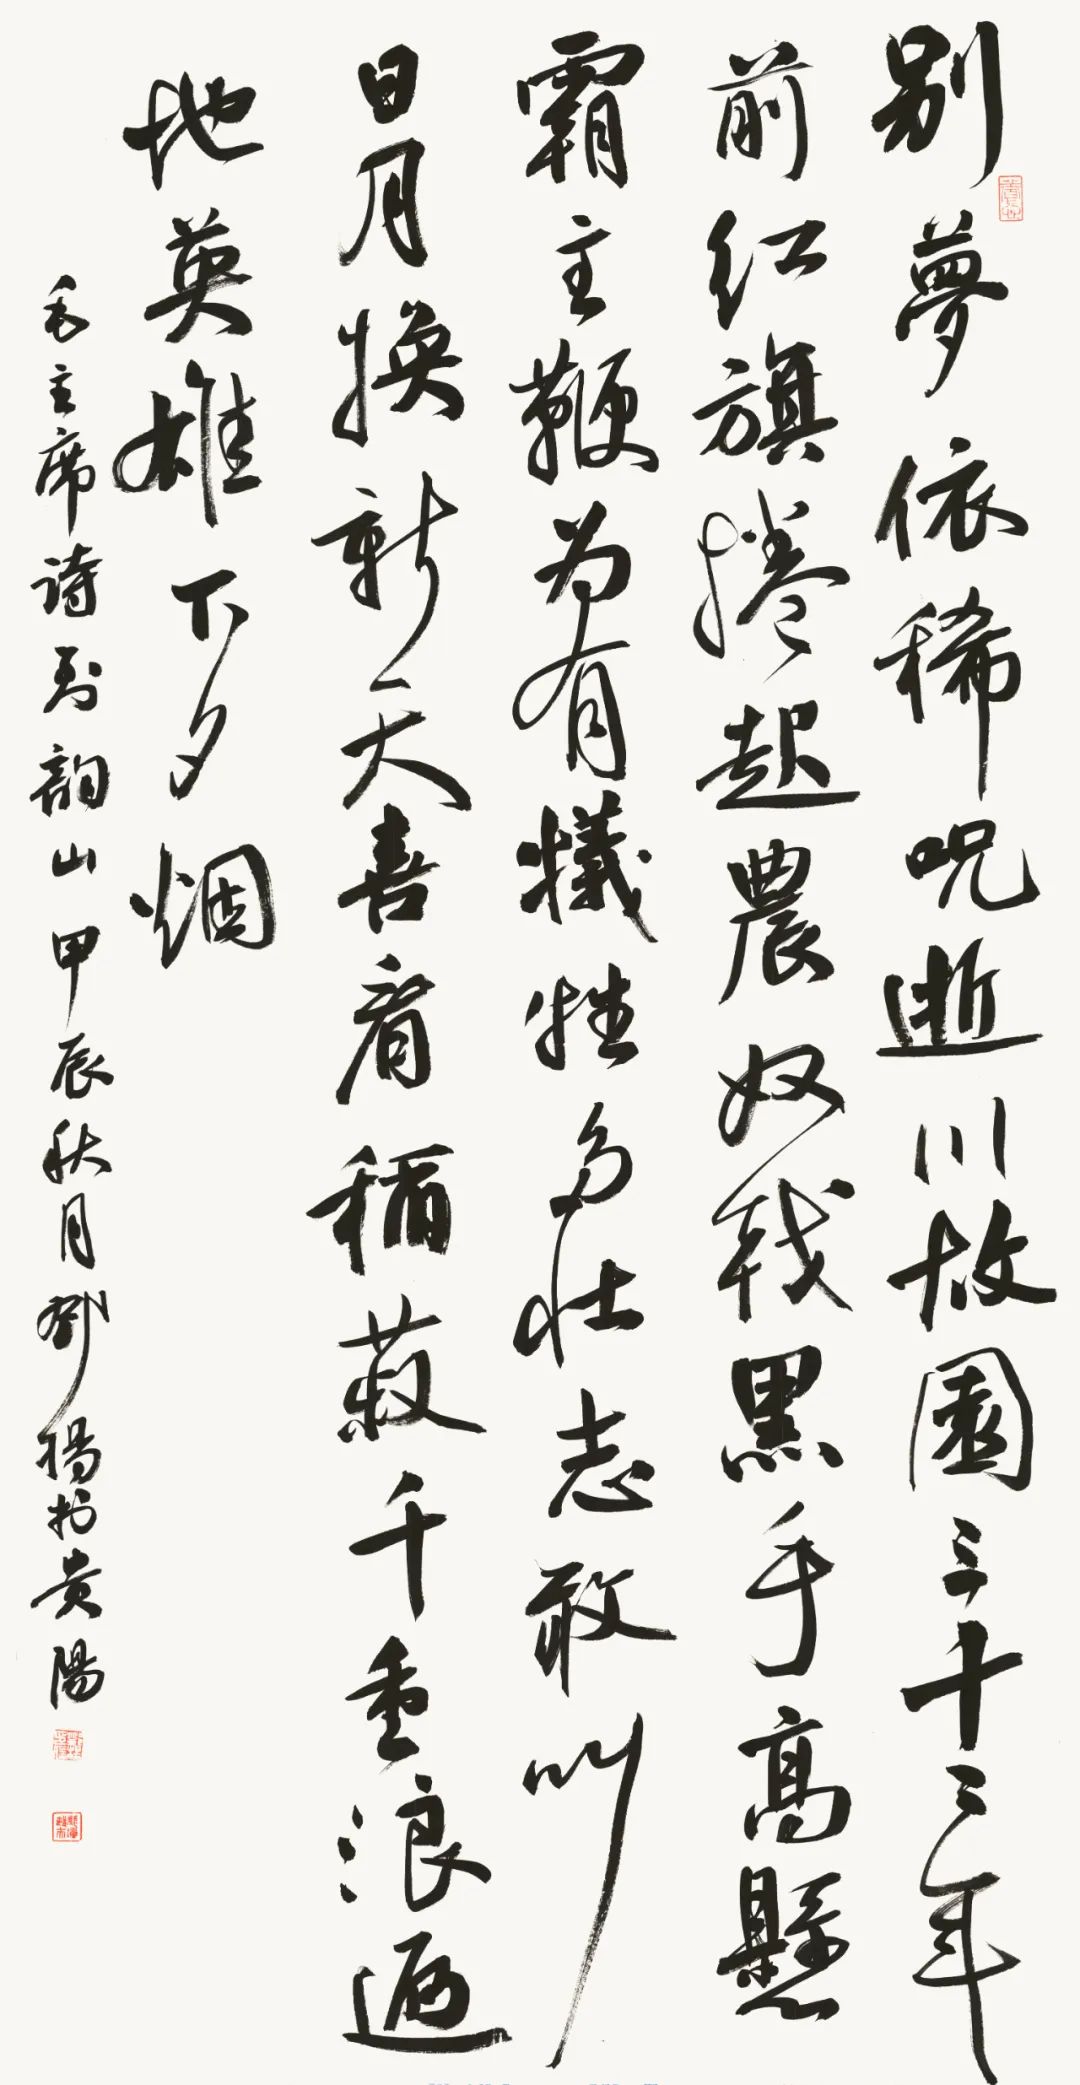 别夢依稀呪逝川故園三十二年
前红旗捲起農奴戟黑手高懸
霸主鞭为有犧牲多壮志敢叫
日月换新天喜看稻菽千重浪遍
地英雄下夕烟
毛主席诗到韶山甲辰秋月劉揚於贵陽